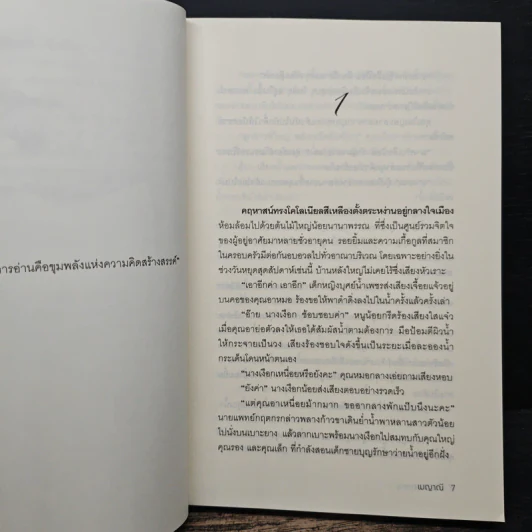 การอ่านคือขุมพลังแห่งความคิดสร้างสรรค์
1
คฤหาสน์ทรงโคโลเนียลสีเหลืองตั้งตระหง่านอยู่กลางใจเมือง
ห้อมล้อมไปด้วยต้นไม้ใหญ่น้อยนานาพรรณ ที่ซึ่งเป็นศูนย์รวมจิตใจ
ของผู้อยู่อาศัยมาหลายชั่วอายุคน รอยยิ้มและความเกื้อกูลที่สมาชิก
ในครอบครัวมีต่อกันอบอวลไปทั่วอาณาบริเวณ โดยเฉพาะอย่างยิ่งใน
ช่วงวันหยุดสุดสัปดาห์เช่นนี้ บ้านหลังใหญ่ไม่เคยไร้ซึ่งเสียงหัวเราะ
“เอาอีกค่า เอาอีก” เด็กหญิงบุศย์น้ำเพชรส่งเสียงเจื้อยแจ้วอยู่
บนคอของคุณอาหมอ ร้องขอให้พาดำดิ่งลงไปในน้ำครั้งแล้วครั้งเล่า
“อ๊าย นางเงือก ช้อบชอบค่า” หนูน้อยกรีดร้องเสียงใสแจ๋ว
เมื่อคุณอาย่อตัวลงให้เธอได้สัมผัสน้ำตามต้องการ มือป้อมตีผิวน้ำ
ให้กระจายเป็นวง เสียงร้องชอบใจดังขึ้นเป็นระยะเมื่อละอองน้ำ
กระเด็นโดนหน้าตนเอง
“นางเงือกเหนื่อยหรือยังคะ” คุณหมอกลางเอ่ยถามเสียงหอบ
“ยังค่า” นางเงือกน้อยส่งเสียงตอบอย่างรวดเร็ว
“แต่คุณอาเหนื่อยม้ากมาก ขออากลางพักแป๊บนึงนะคะ”
นายแพทย์กฤตกรกล่าวพลางก้าวขาเดินย่ำน้ำพาหลานสาวตัวน้อย
ไปนั่งบนเบาะยาง แล้วลากเบาะพร้อมนางเงือกไปสมทบกับคุณใหญ่
คุณรอง และคุณเล็ก ที่กำลังสอนเด็กชายบุญรักษาว่ายน้ำอยู่อีกฝั่ง
เมญาณี 7